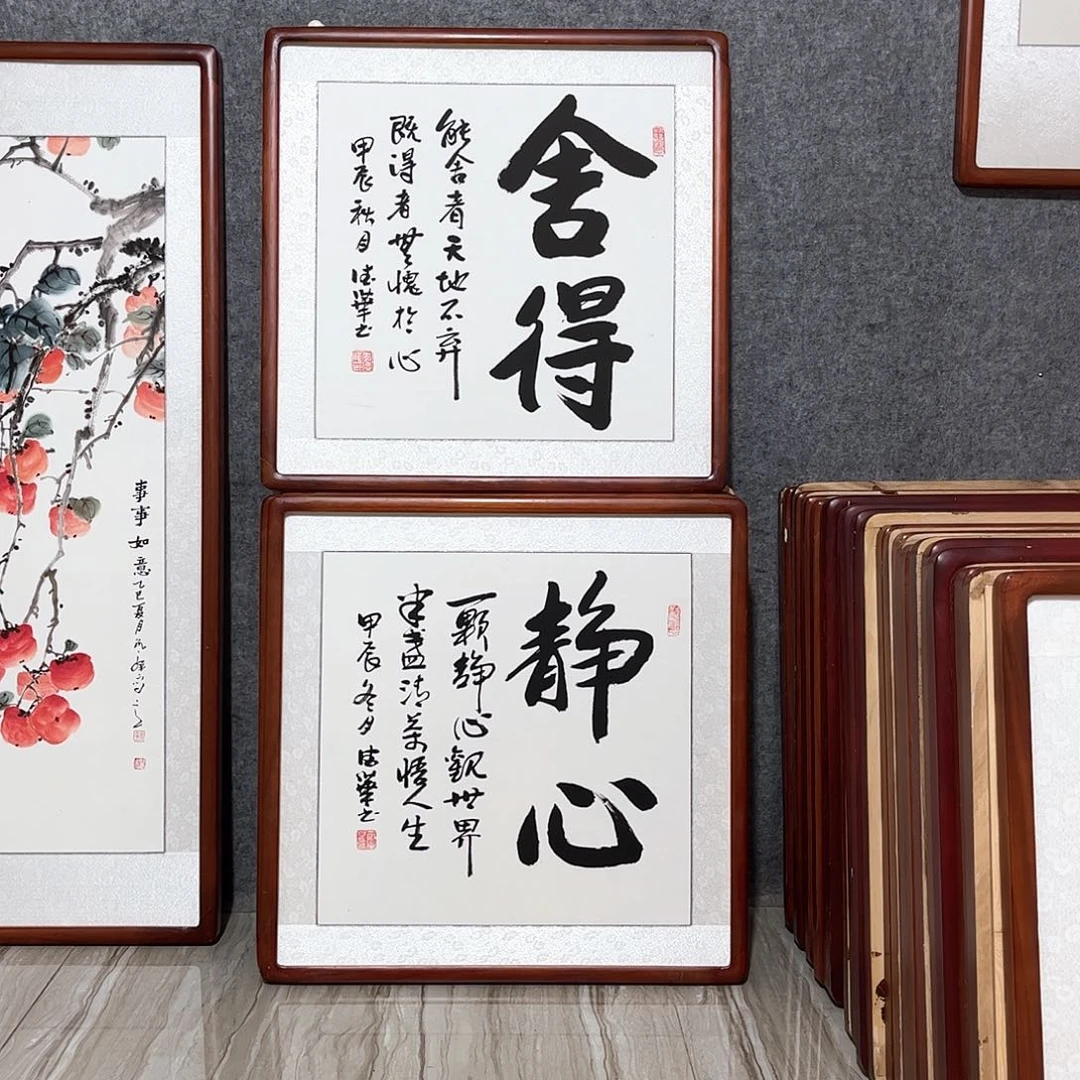 舍得
能舍者天地不弃
既得者无愧於心
甲辰秋月德华书
静心
一颗静心观世界
半盏清茶悟人生
甲辰冬月德华书
事事如意
乙巳夏月